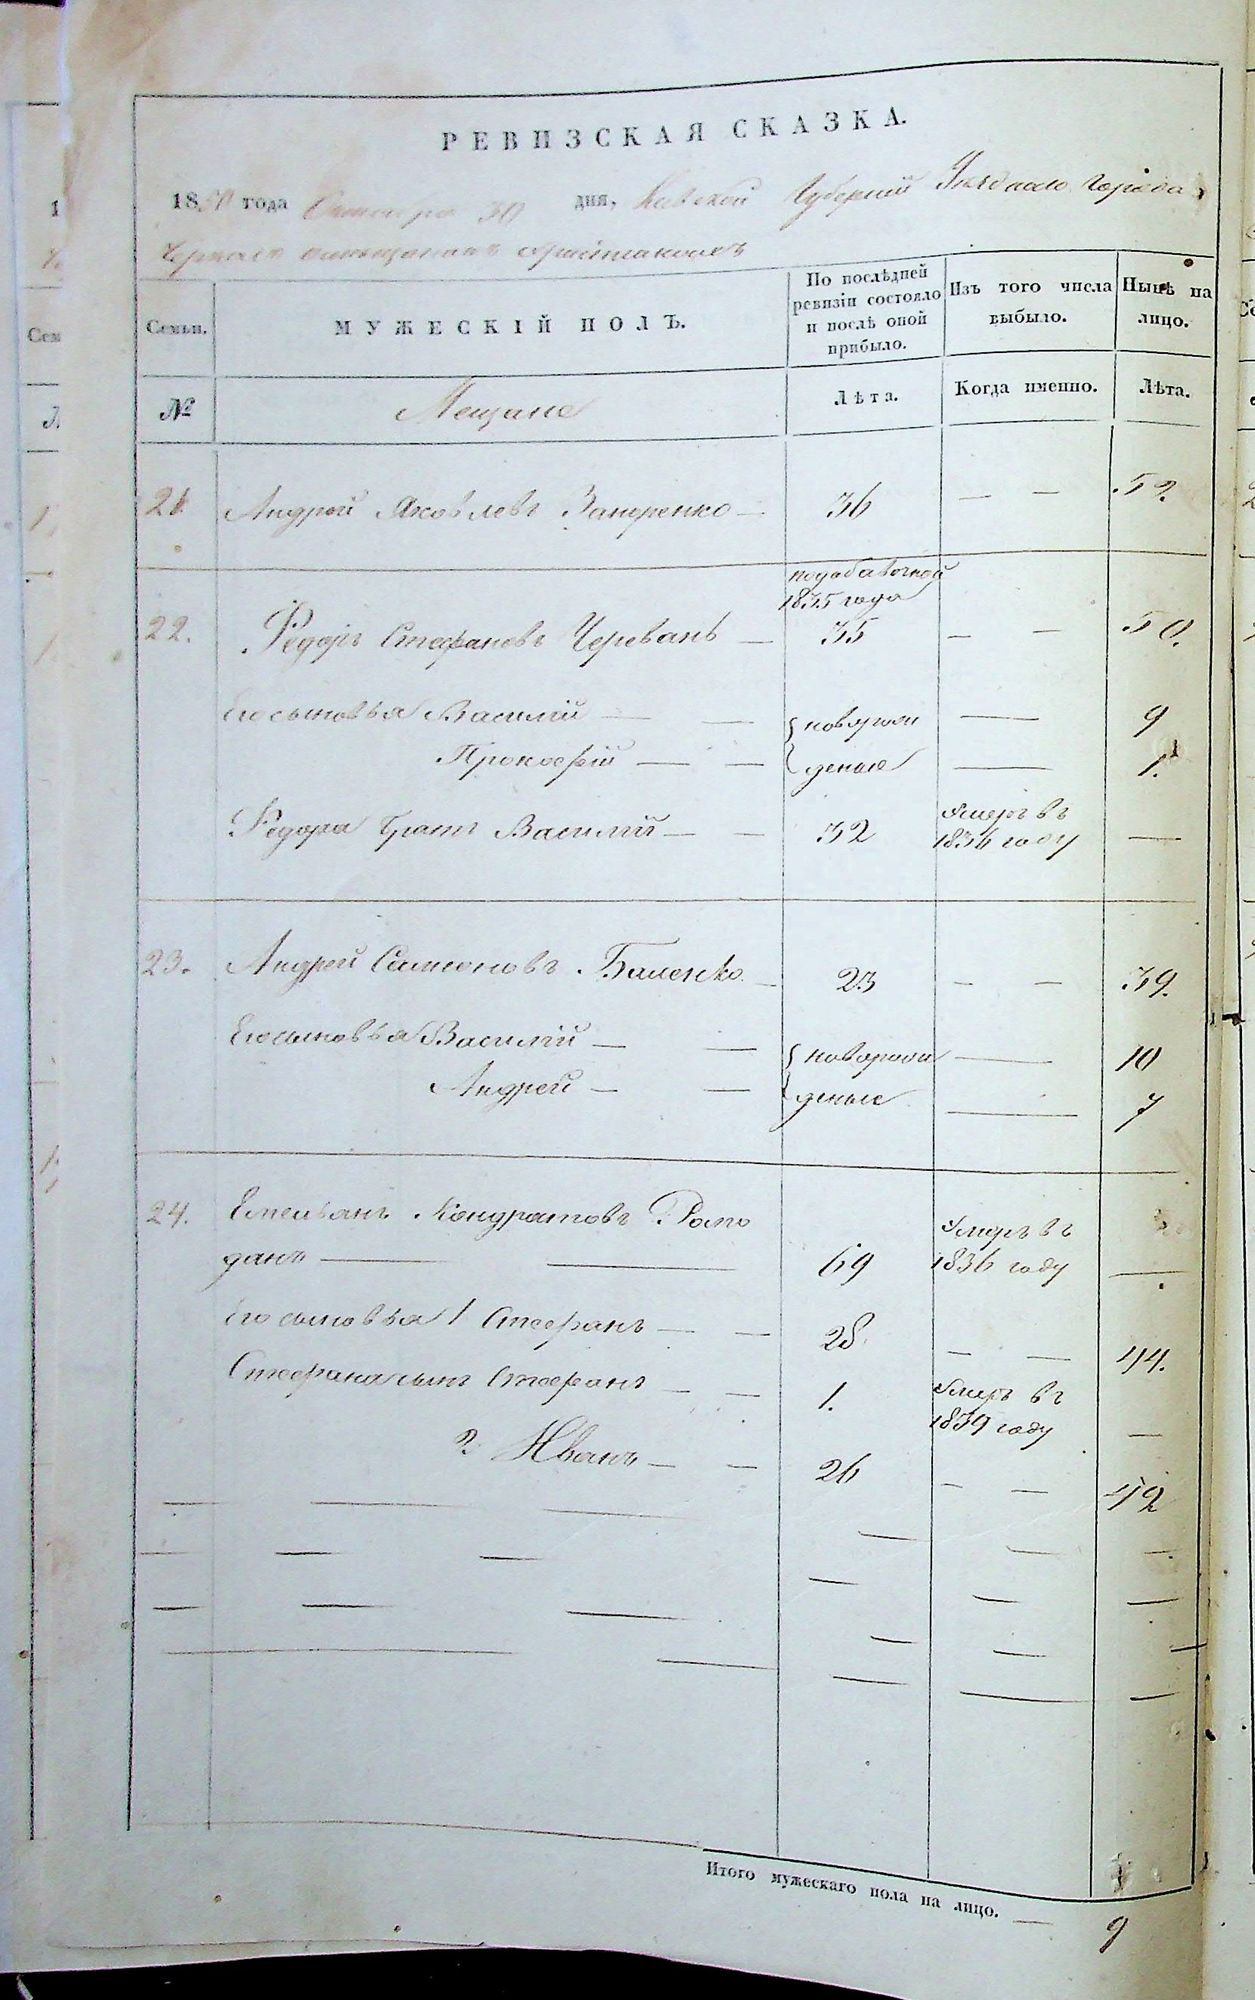 РЕВИЗСКАЯ СКАЗКА.
1850 года Октября 30 дня, Кіевской Губерніи Уѣзднаго города
Черкасъ
Семьи.
МУЖЕСКІЙ ПОЛЪ.
По послѣдней ревизіи состояло и послѣ оной прибыло.
Изъ того числа выбыло.
Нынѣ на лицо.
№
Мещане
Лѣта.
Когда именно.
Лѣта.
21 Андрей Яковлевъ — 36 — — 52.
1835 года
22. Федоръ Стефановъ Черевань — 35 — — 50.
Его сыновья Василій — — новорож — 9
Прокофій — — деные — 1.
Федора братъ Василій — — 32 Умеръ въ 1836 году —
23. Андрей Самсоновъ — 23 — — 39.
Его сыновья Василій — — новорож — 10
Андрей — — деные — 7
24. Емельянъ Кондратовъ Ромо
данъ — — 69 Умеръ въ 1836 году —
Его сыновья 1 Стефанъ — — 28 — — 44.
Стефана сынъ Стефанъ — — 1. Умеръ въ 1839 году —
2 Иванъ — — 26 — — 42
Итого мужескаго пола на лицо. — 9